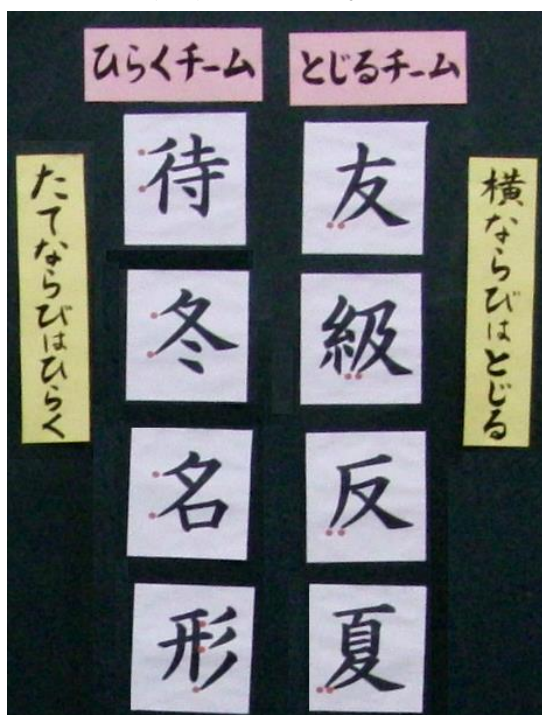 ひらくチーム
とじるチーム
たてならびはひらく
待
冬
名
形
友
級
反
夏
横ならびはとじる